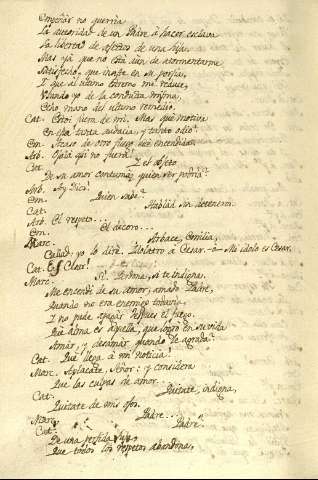 Empeñar no querria
La autoridad de un Padre á hacer esclava
La libertad de afectos de una hija.
Mas yá que no está aun de atormentarme
Satisfecho, que insta en su porfia,
I que al ultimo estremo me reduce,
Usando yo de la conducta misma,
Echo mano del ultimo remedio.
Cat. Estoi fuera de mi. Mas que motivo
En ella tanta audacia, y tanto odio?
Em. Acaso de otro fuego arde encendida.
Arb. Ojalá asi no fuera!
Cat. I el objeto
De su amor contumáz quien ser podria?
Arb. Ay Dios!
Em. Quien sabe?
Cat. Hablad sin deteneros.
Arb. El respeto...
Em. El decoro...
Marc. Arbace, Emilia,
Callad: yo lo diré. Idolatro á Cesar. Mi idolo es Cesar.
Cat. Es Cesar!
Marc. Si. Perdona, si te indigna.
Me encendi de su amor, amado Padre,
Quando no era enemigo todavia,
I no pude apagar despues el fuego.
Que alma es aquella, que logró en su vida
Amar, y desamar quando le agrada?
Cat. Qué llega á mi noticia!
Marc. Aplacate, Señor: y considera
Que las culpas de amor...
Cat. Quitate, indigna,
Quitate de mis ojos.
Marc. Padre...
Cat. Padre
De una perfida hija,
Que todos los respetos abandona,